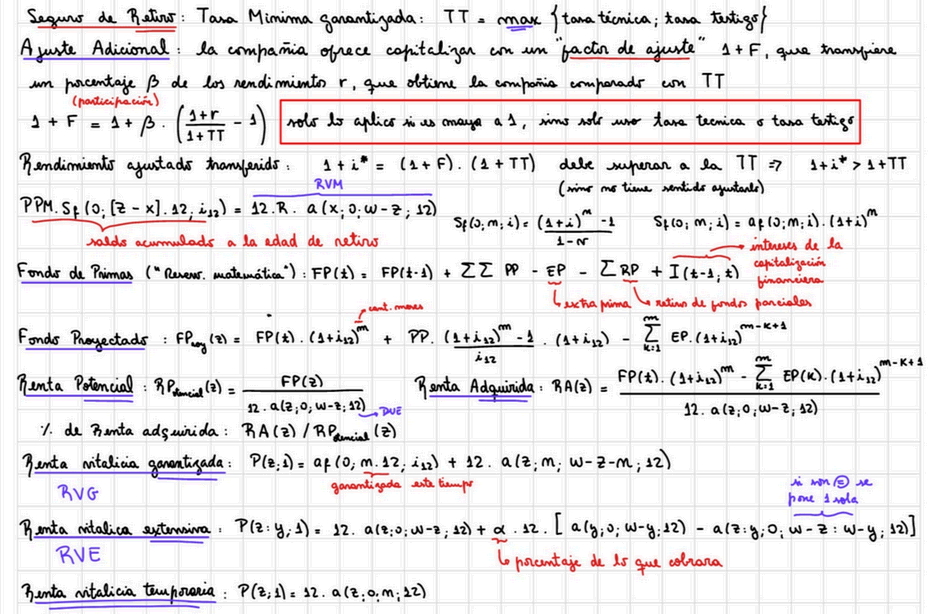 Seguro de Retiro: Tasa Mínima garantizada: TT = max {tasa técnica; tasa testigo}
Ajuste Adicional: la compañía ofrece capitalizar con un "factor de ajuste" 1+F, que transfiere
un porcentaje β de los rendimiento r, que obtiene la compañia comparado con TT
(participación)
1 + F = 1 + β · ( (1+r)/(1+TT) - 1 ) solo lo aplico si es mayor a 1, sino solo uso tasa tecnica o tasa testigo
Rendimiento ajustado transferido: 1 + i* = (1+F) · (1+TT) debe superar a la TT ⇒ 1+i* > 1+TT
RVM (sino no tiene sentido ajustarlo)
PPM.Sf(0;[z-x].12;i12) = 12.R. a(x;0;w-z;12) Sf(0;m;i) = ((1+i)^m - 1)/(1-v) Sf(0;m;i) = af(0;m;i).(1+i)^m
saldo acumulado a la edad de retiro
intereses de la capitalización financiera
Fondo de Primas ("Reserv. matemática"): FP(t) = FP(t-1) + ΣΣ PP - EP - Σ RP + I(t-1;t)
extra prima retiro de fondos parciales
cant. meses
Fondo Proyectado: FPproy(z) = FP(t).(1+i12)^m + PP. ((1+i12)^m - 1)/i12 . (1+i12) - Σ_{k=1}^{m} EP.(1+i12)^{m-k+1}
Renta Potencial: RPotencial(z) = FP(z) / (12.a(z;0;w-z;12)) Renta Adquirida: RA(z) = (FP(t).(1+i12)^m - Σ_{k=1}^{m} EP(k).(1+i12)^{m-k+1}) / (12.a(z;0;w-z;12))
DUE
% de Renta adquirida: RA(z) / RPotencial(z)
Renta vitalicia garantizada: P(z;1) = af(0;m.12;i12) + 12. a(z;m;w-z-m;12)
garantizada este tiempo
RVG
si son = se pone 1 sola
Renta vitalica extensiva: P(z:y;1) = 12. a(z;0;w-z;12) + α.12.[a(y;0;w-y;12) - a(z:y;0;w-z:w-y;12)]
RVE
porcentaje de lo que cobrara
Renta vitalicia temporaria: P(z;1) = 12. a(z;0;m;12)